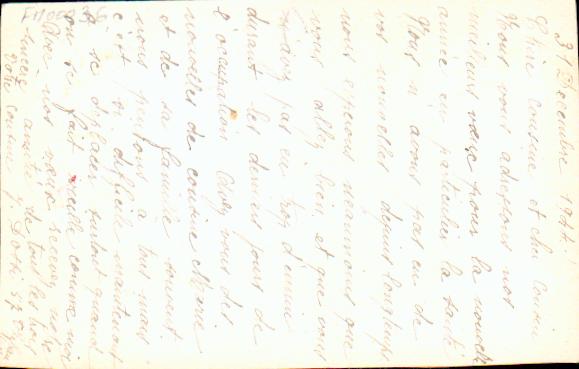 31 Décembre 1944.
Chère cousine et cher Cousin
Nous vous adressons nos
meilleurs vœux pour la nouvelle
année en particulier la santé
Nous n'avons pas eu de
vos nouvelles depuis longtemps
nous espérons néanmoins que
vous allez bien, et que vous
n'avez pas eu trop d'ennui
durant les derniers jours de
l'occupation. Avez vous des
nouvelles de cousine Marie
et de sa famille souvent
nous pensons à tous mais
c'est si difficile maintenant
de se déplacer surtout quand
on se fait vieille comme moi
Avec nos vœux recevez notre
sincère amitié de tous les
votre cousine